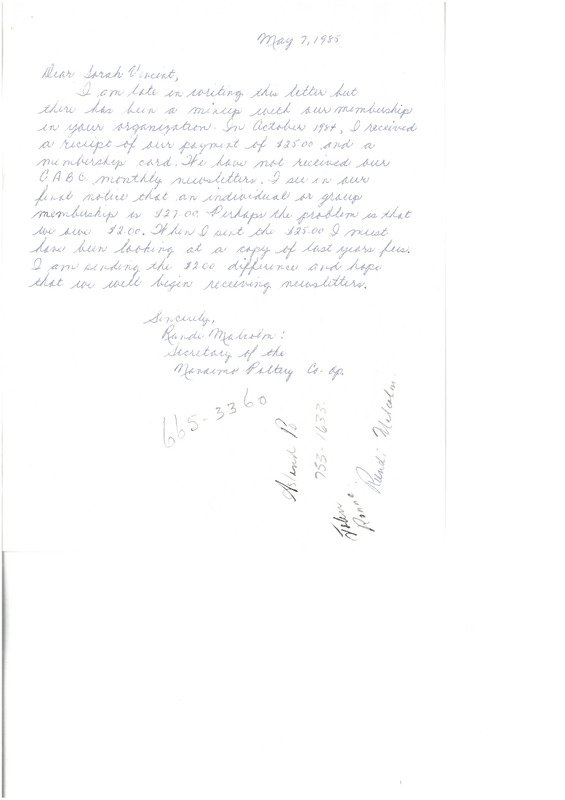 May 7, 1985
Dear Sarah Vincent,
I am late in writing this letter but
there has been a mixup with our membership
in your organization. In October 1984, I received
a reciept of our payment of $25.00 and a
membership card. We have not received our
C.A.B.C. monthly newsletters. I see in our
final notice that an individual or group
membership is $27.00. Perhaps the problem is that
we owe $2.00. When I sent the $25.00 I must
have been looking at a copy of last years fees.
I am sending the $2.00 difference and hope
that we will begin receiving newsletters.
Sincerely,
Randi Malcolm:
Secretary of the
Nanaimo Pottery Co-op.
665-3360
753-1633
Randi Malcolm